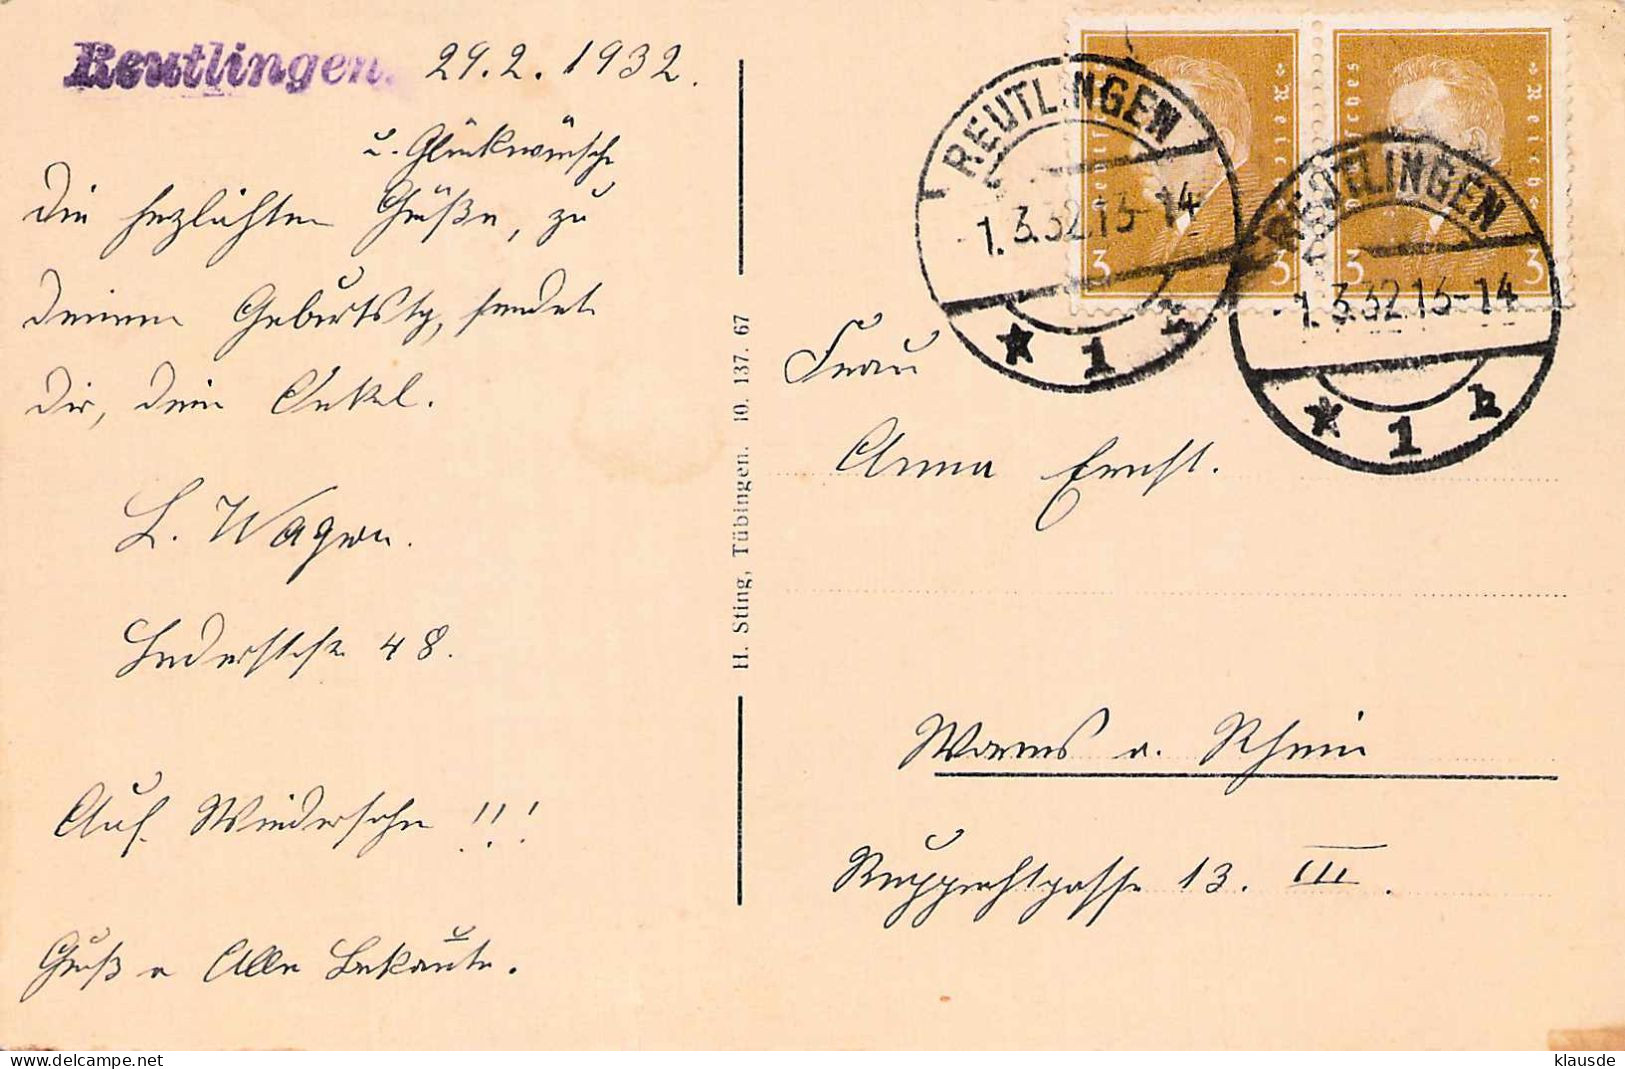 Reutlingen. 29.2.1932.
u. Glückwünsche
Die herzlichsten Grüße, zu
deinem Geburtstg, sendet
dir, dein Onkel.
L. Wagen.
Lederstrße 48.
Auf Wiedersehn !!!
Gruß a Alle Bekannte.
H. Sting, Tübingen. 10. 137. 67
Deutsches Reich
3 3
Deutsches Reich
3 3
REUTLINGEN
1.3.32.13-14
* 1 h
REUTLINGEN
1.3.32.13-14
* 1 h
Frau
Anna Ernst.
Worms a. Rhein
Rupprechtgasse 13. III.
www.delcampe.net
klausde